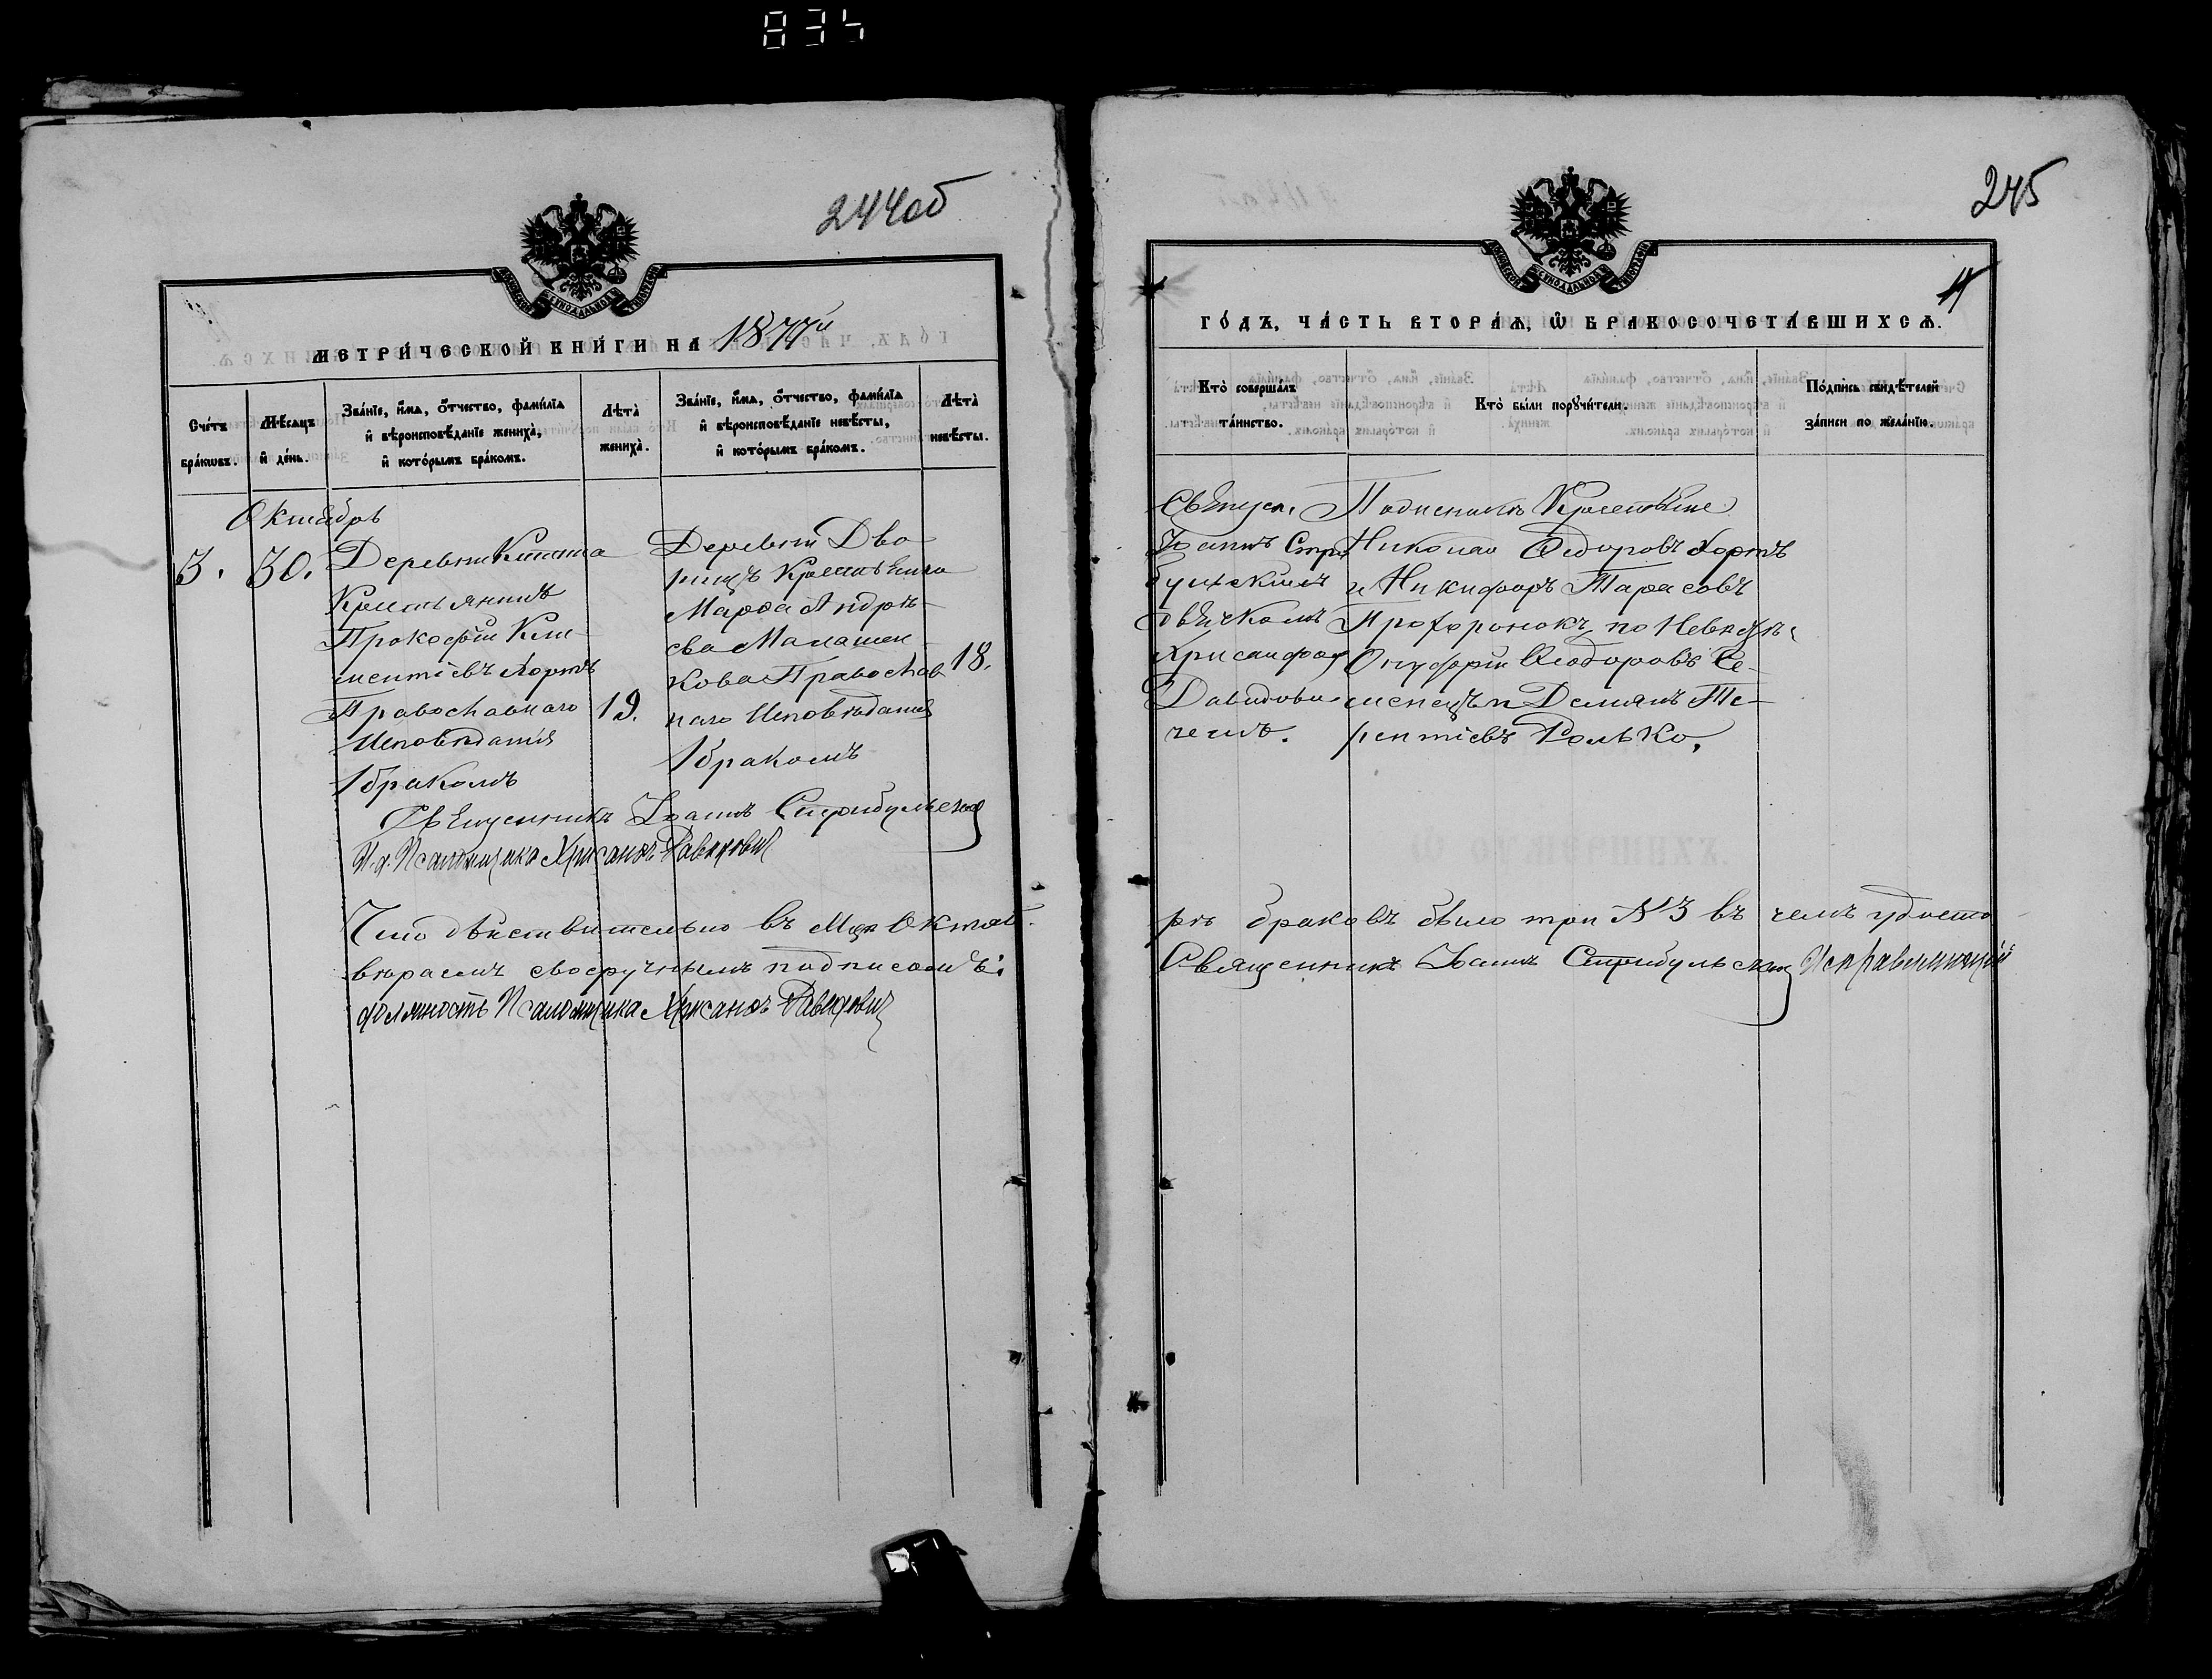 834
244об
МЕТРИ́ЧЕСКОЙ КНИ́ГИ НА 1877й
Сче́тъ бра́кωвъ.
Мѣ́сяцъ и де́нь.
Зва́нїе, и́мѧ, ѻ́тчество, фами́лїѧ и҆ вѣроисповѣ́данїе жениха̀, и҆ кото́рымъ бра́комъ.
Лѣ́та жениха̀.
Зва́нїе, и́мѧ, ѻ́тчество, фами́лїѧ и҆ вѣроисповѣ́данїе невѣ́сты, и҆ кото́рымъ бра́комъ.
Лѣ́та невѣ́сты.
Октябрь
3. 30.
Деревни
Крестьянинъ
Прокофій Кли-
ментіевъ Хортъ
Православнаго
Исповѣданія
1 бракомъ
19.
Деревни Дво-
рищъ Крестьянка
Марѳа Андрѣ-
ева Малашен-
кова Православ-
наго Исповѣданія
1 бракомъ
18.
Священникъ Іоаннъ Стрибульскій
И. д. Псаломщика Хрисанѳъ Давидовичъ
Что дѣйствительно въ Мцѣ Октяб-
вѣряемъ своеручнымъ подписомъ:
должность Псаломщика Хрисанѳъ Давидовичъ
245
ГО́ДЪ, ЧА́СТЬ ВТОРА́Ѧ, Ѡ҆ БРАКОСОЧЕТА́ВШИХСѦ.
Кто̀ соверша́лъ та́инство.
Кто̀ бы́ли порꙋчи́тели.
По́дпись свидѣ́телей за́писи по жела́нїю.
Священ.
Іоаннъ Стри-
бульскій съ
дьячкомъ
Хрисанфом
Давидови-
чемъ.
По женихѣ Крестьяне
Николай Ѳедоровъ Хортъ
и Никифоръ Тарасовъ
Прохоронокъ, по Невѣстѣ
Онуфрій Ѳеодоровъ Се-
менецъ и Деміянъ Те-
рентіевъ Ролько.
рѣ браковъ было три №3 въ чемъ удосто-
Священникъ Іоаннъ Стрибульскій Исправляющій